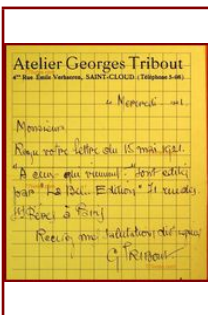 Atelier Georges Tribout
4bis Rue Émile Verhaeren, SAINT-CLOUD (Téléphone 5-08)
Mercredi
Monsieur
Reçu votre lettre du 15 mai 1921.
"A ceux qui viennent" sont édités
par "La Bel. Edition" 71 rue des
Sts Pères à Paris
Recevez mes salutations
G Tribout